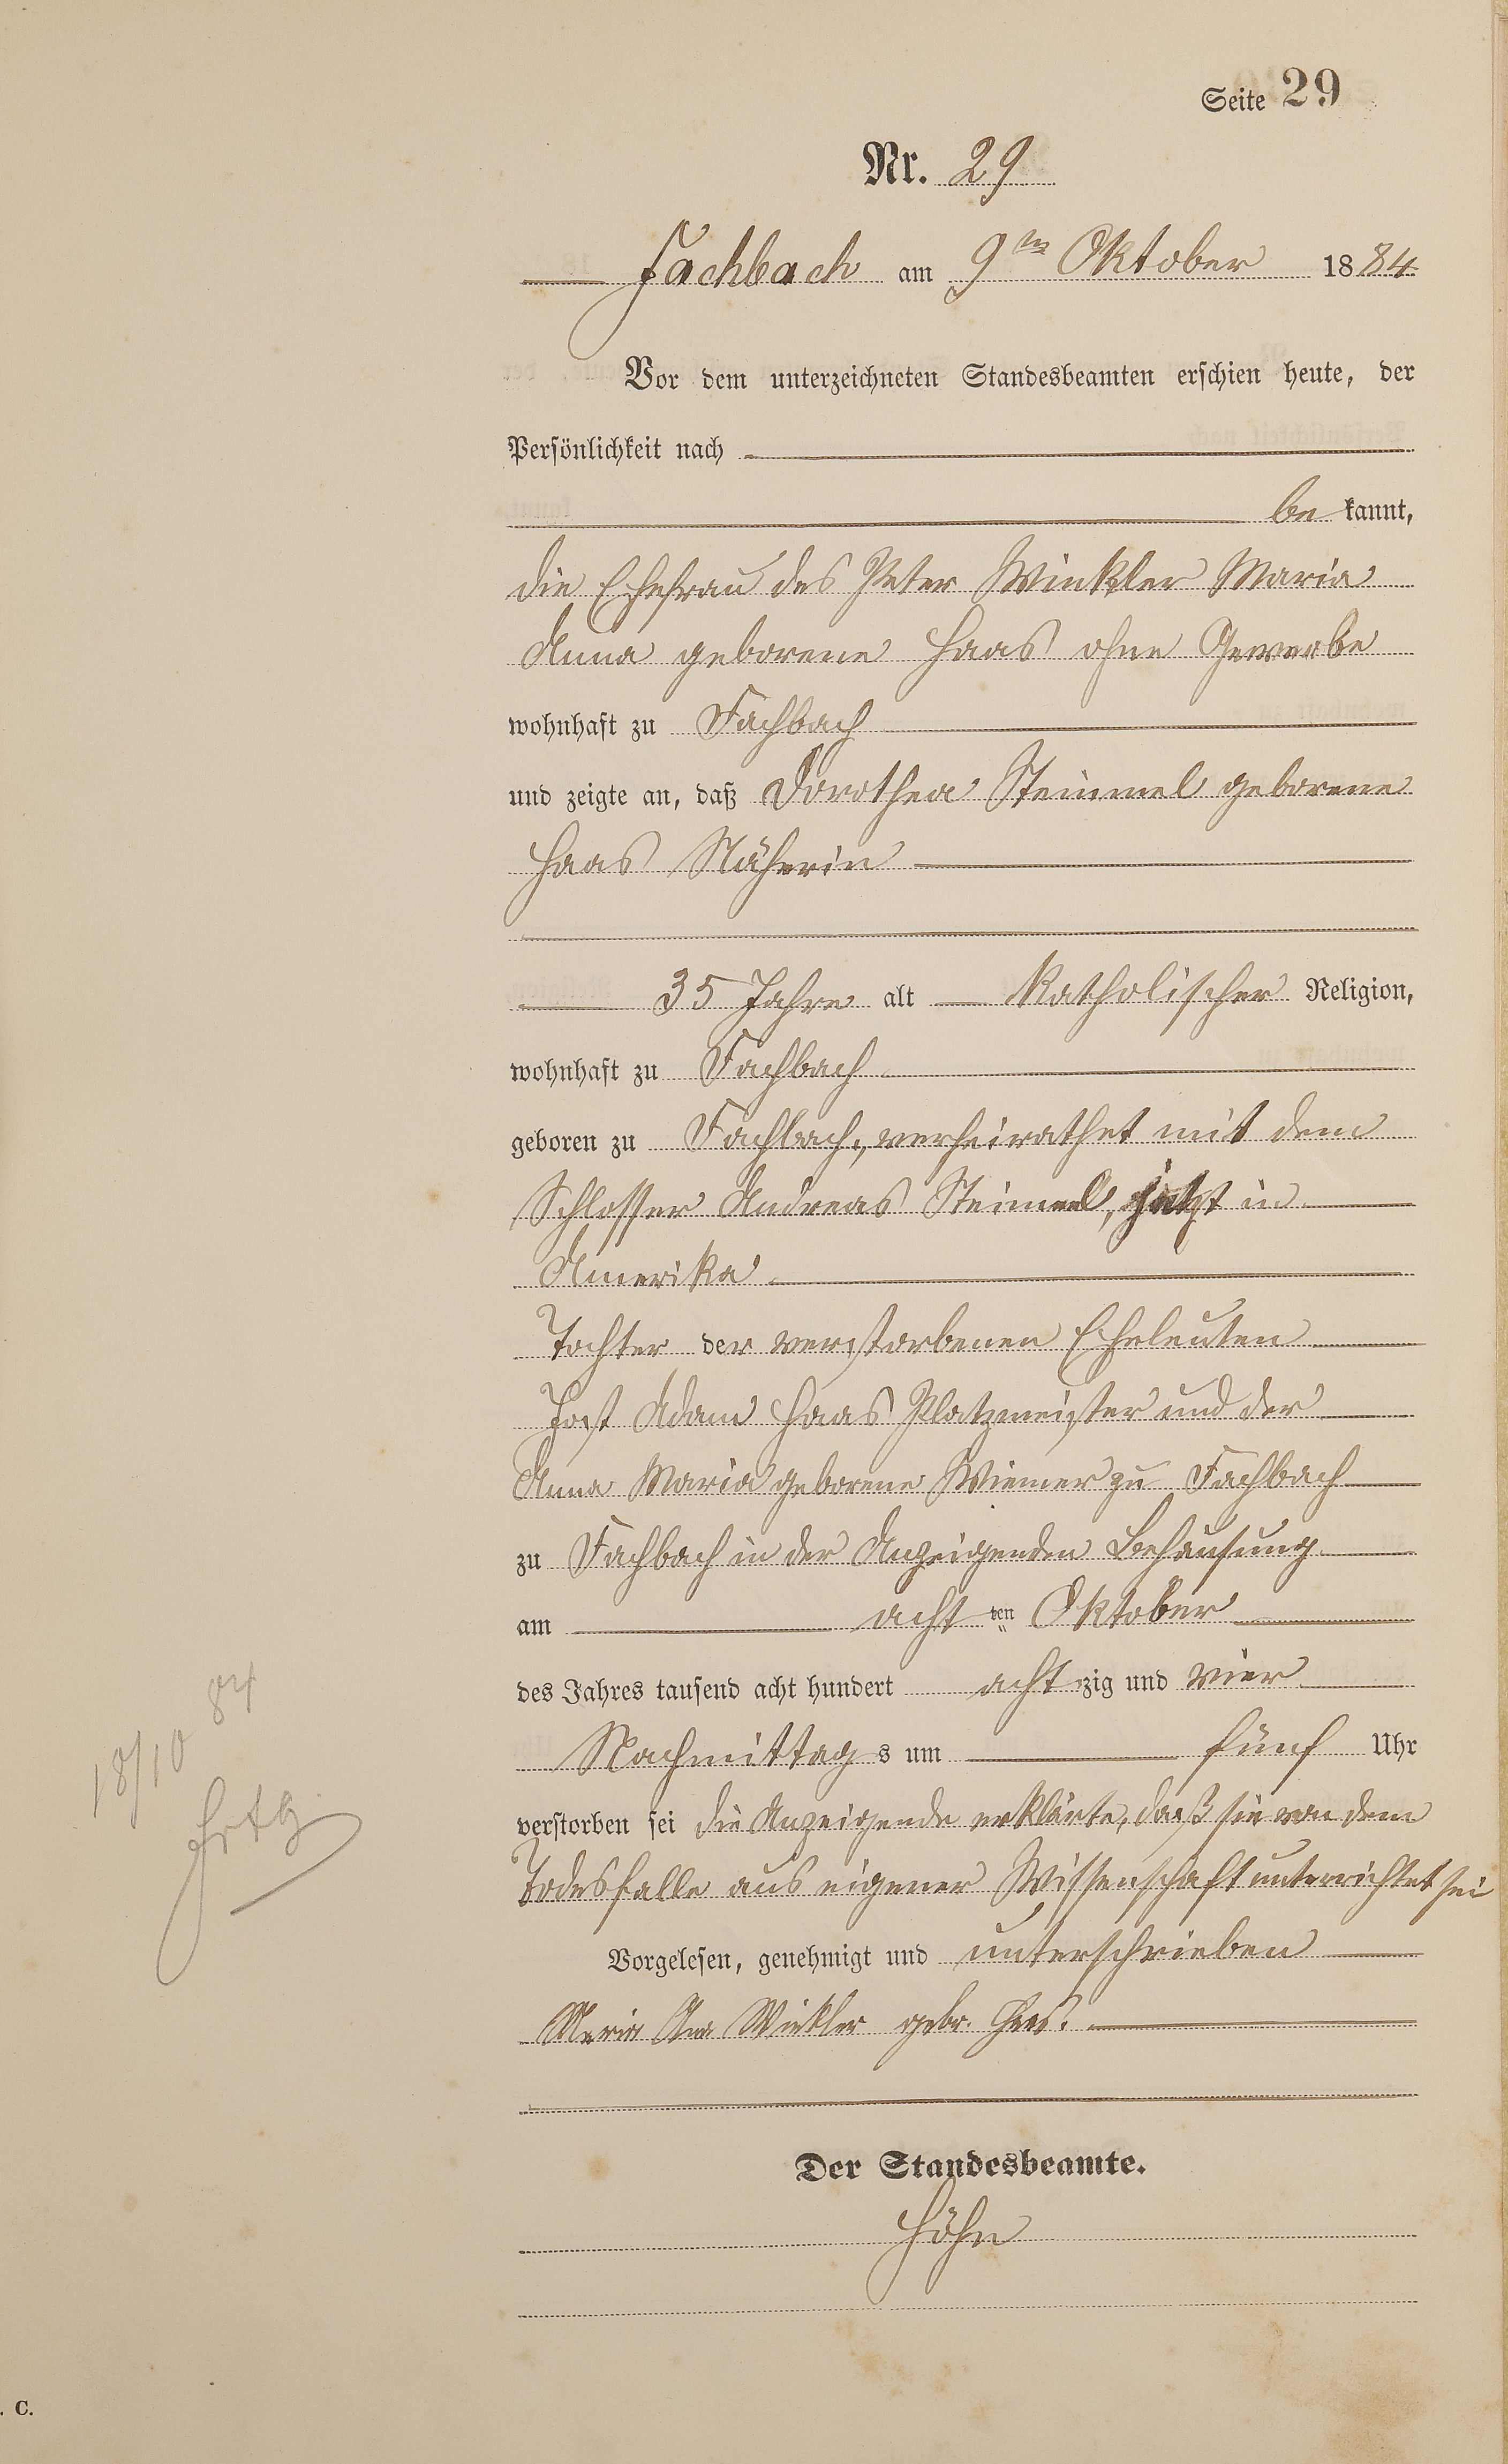 Seite 29
Nr. 29
Fachbach am 9ten Oktober 1884
Vor dem unterzeichneten Standesbeamten erschien heute, der
Persönlichkeit nach
be kannt,
die Ehefrau des Peter Winkler Maria
Anna geborene Haas ohne Gewerbe
wohnhaft zu Fachbach
und zeigte an, daß Dorothea Steimel geborene
Haas Näherin
35 Jahre alt katholischer Religion,
wohnhaft zu Fachbach
geboren zu Fachbach, verheirathet mit dem
Schlosser Andreas Steimel, jetzt in
Amerika
Tochter der verstorbenen Eheleuten
Jost Adam Haas Platzmeister und der
Anna Maria geborene Wiemer zu Fachbach
zu Fachbach in der Anzeigenden Behausung
am acht ten Oktober
des Jahres tausend acht hundert acht zig und vier
Nachmittag s um fünf Uhr
verstorben sei die Anzeigende erklärte, daß sie von dem
Todesfalle aus eigener Wissenschaft unterrichtet sei
Vorgelesen, genehmigt und unterschrieben
Maria Ana Winkler gebr. Haas.
Der Standesbeamte.
Höhn
18/10 84
. C.